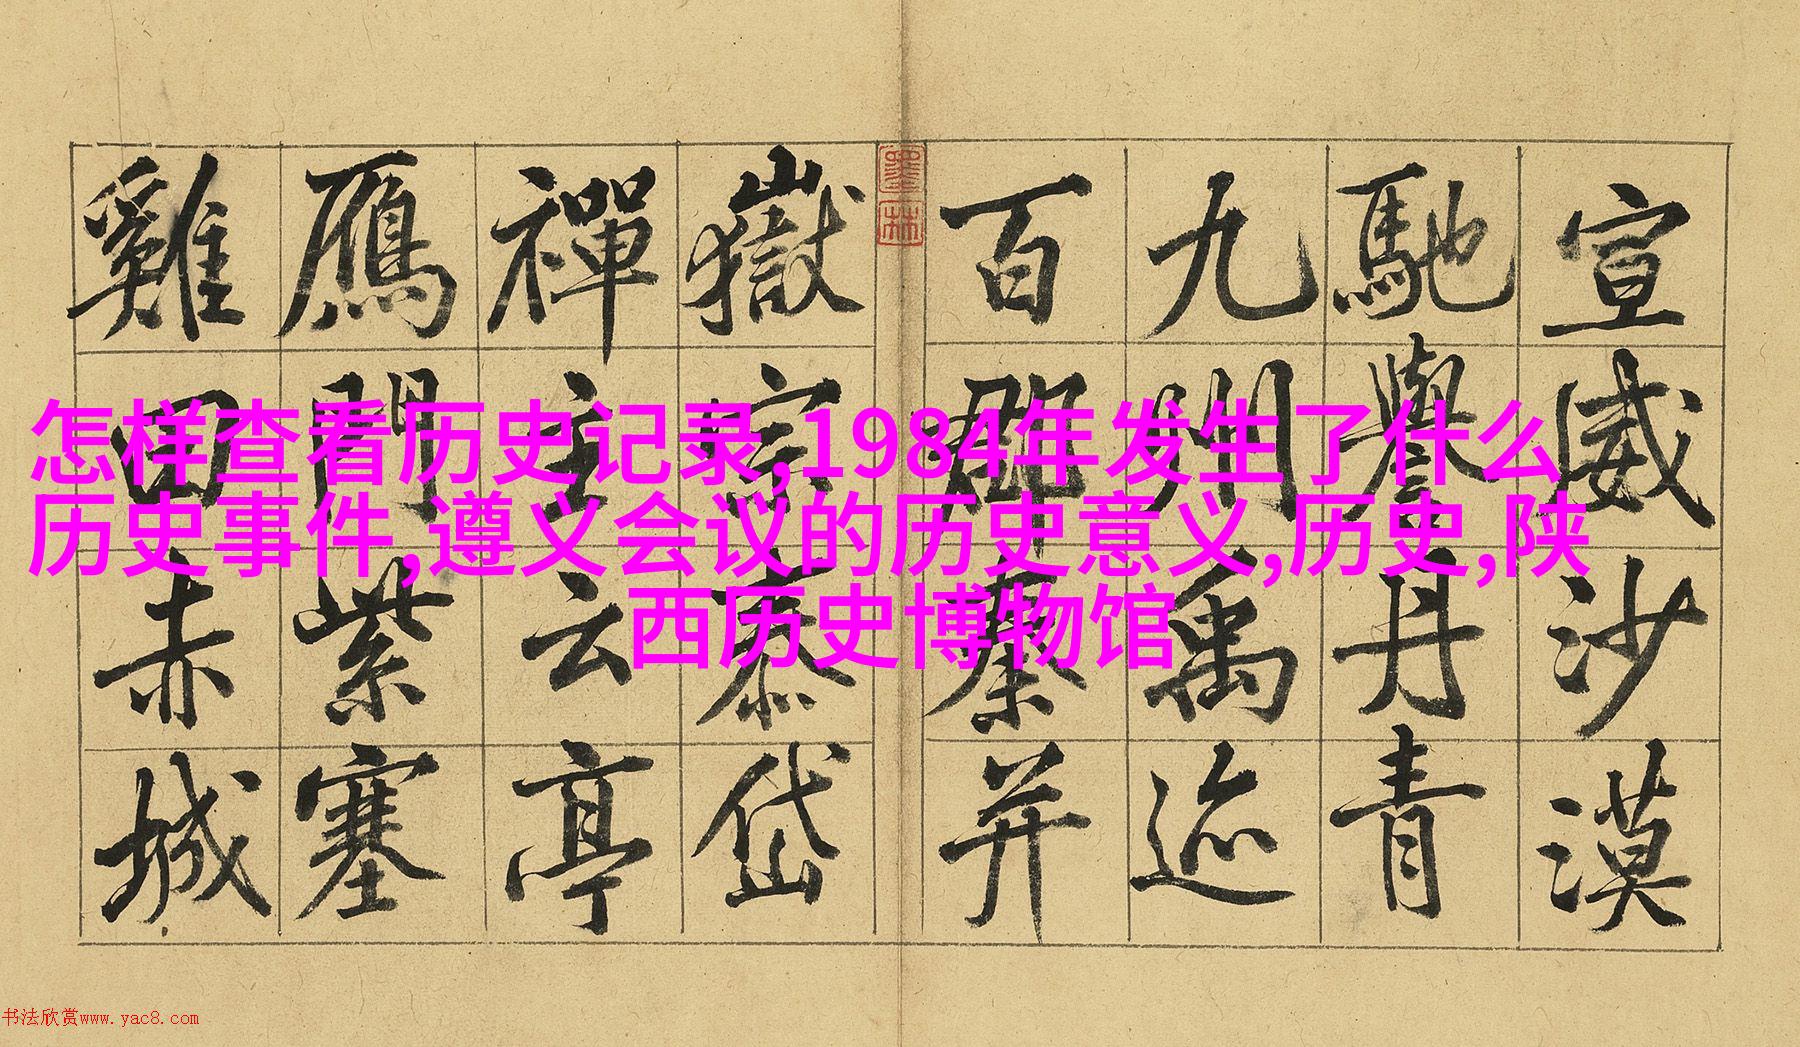 宣威沙漠
馳譽丹青
九州禹迹
百郡秦并
墨林
嶽宗泰岱
禪主云亭
鴈門紫塞
雞田赤城
怎样查看历史记录,1984年发生了什么
历史事件,遵义会议的历史意义,历史,陕
西历史博物馆
书法欣赏www.yac8.com